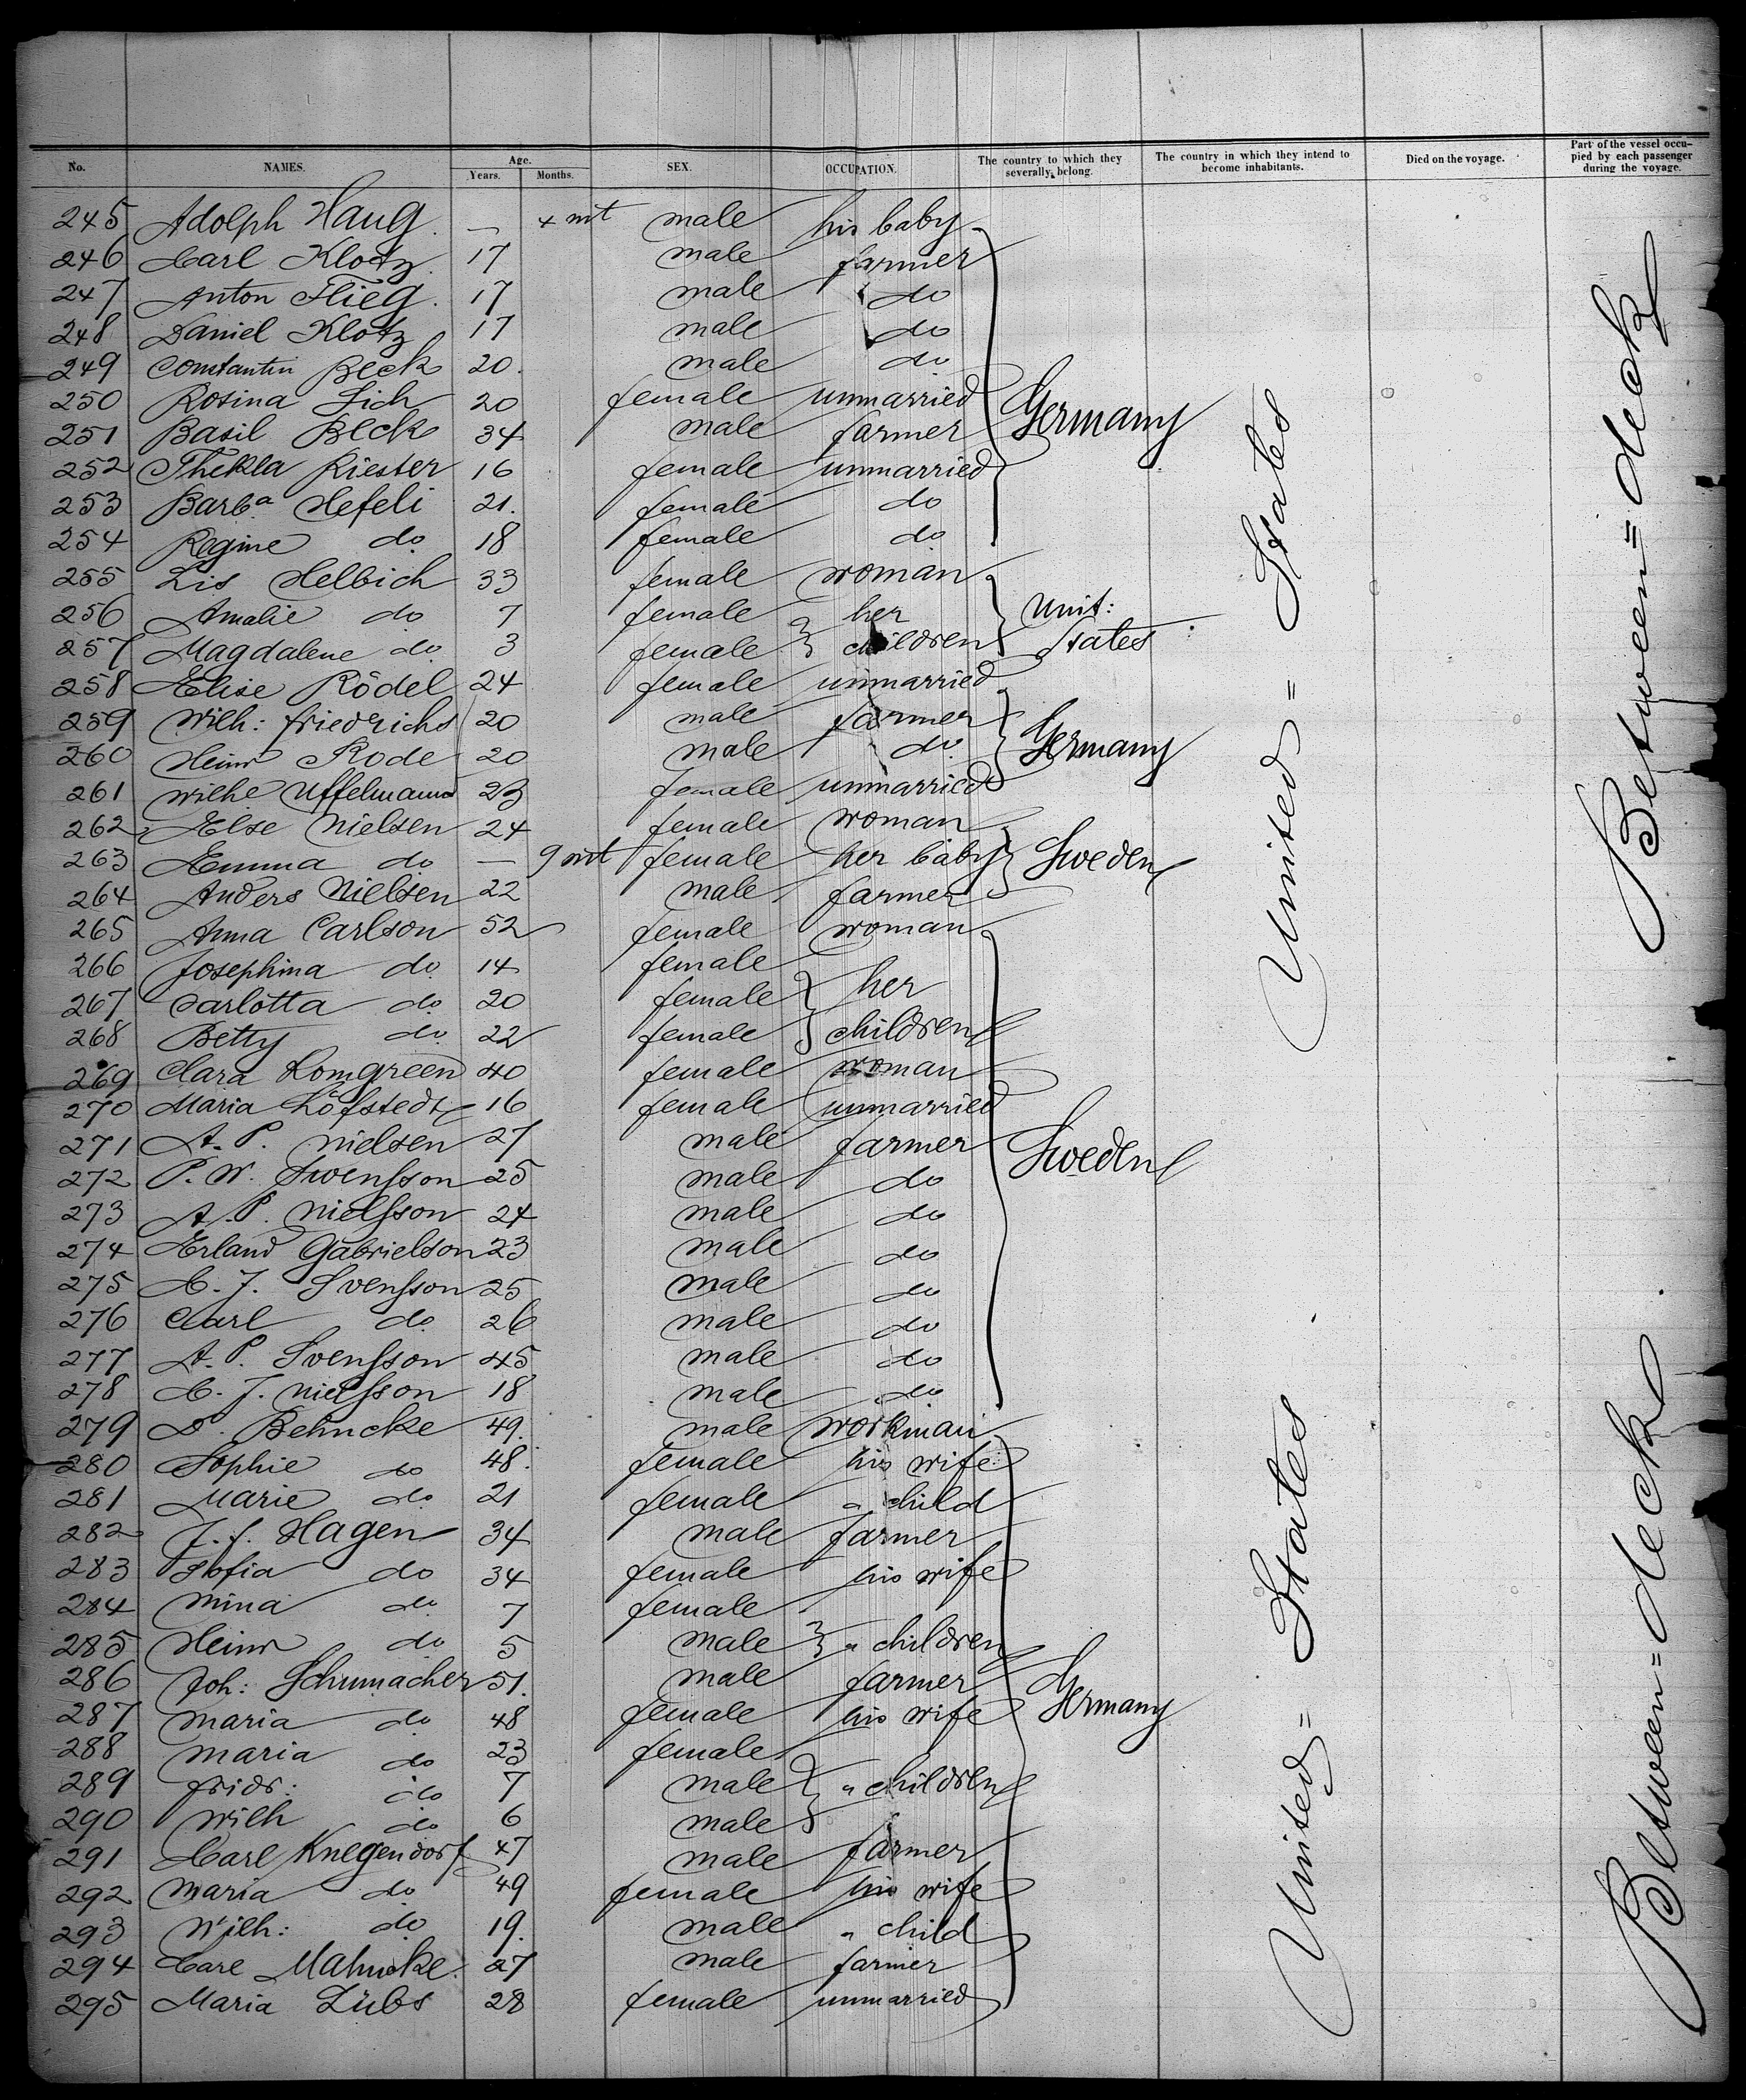 No. NAMES. Age. Years. Months. SEX. OCCUPATION. The country to which they severally belong. The country in which they intend to become inhabitants. Died on the voyage. Part of the vessel occupied by each passenger during the voyage.
245 Adolph Haug. — 4 mt male his baby
246 Carl Klotz 17 male farmer
247 Anton Flieg. 17 male do
248 Daniel Klotz 17 male do
249 Constantin Beck 20. male do
250 Rosina Lich 20 female unmarried Germany
251 Basil Beck 34 male farmer
252 Thekla Riester 16 female unmarried
253 Barba Hefeli 21. female do
254 Regine do 18 female do
255 Lis Helbich 33 female woman
256 Amalie do 7 female her Unit:
257 Magdalene do 3 female children States
258 Elise Rödel 24 female unmarried
259 Wilh: Friedrichs 20 male farmer Germany
260 Heinr Rode 20 male do
261 Wilhe Uffelmann 23 female unmarried
262 Else Nielsen 24 female woman
263 Emma do — 9 mt female her baby Sweden
264 Anders Nielsen 22 male farmer
265 Anna Carlson 52 female woman
266 Josephina do 14 female
267 Carlotta do 20 female her
268 Betty do 22 female children
269 Clara Lomgreen 40 female woman
270 Maria Löfstedt 16 female unmarried
271 A. P. Nielsen 27 male farmer Sweden
272 P. W. Swensson 25 male do
273 A. P. Nielsson 24 male do
274 Erland Gabrielson 23 male do
275 C. J. Svensson 25 male do
276 Carl do 26 male do
277 A. P. Svensson 45 male do
278 C. J. Nielsson 18 male do
279 D. Behncke 49. male workman
280 Sophie do 48. female his wife
281 Marie do 21 female " child
282 J. f. Hagen 34 male farmer
283 Sofia do 34 female his wife
284 Mina do 7 female
285 Heinr do 5 male " children
286 Joh: Schumacher 51. male farmer
287 Maria do 48 female his wife Germany
288 Maria do 23 female
289 Fridr: do 7 male " children
290 Wilh do 6 male
291 Carl Knegendorf 47 male farmer
292 Maria do 49 female his wife
293 Wilh: do 19. male " child
294 Carl Mahncke 27 male farmer
295 Maria Lübs 28 female unmarried
United = States
United = States
Between = deck
Between = deck